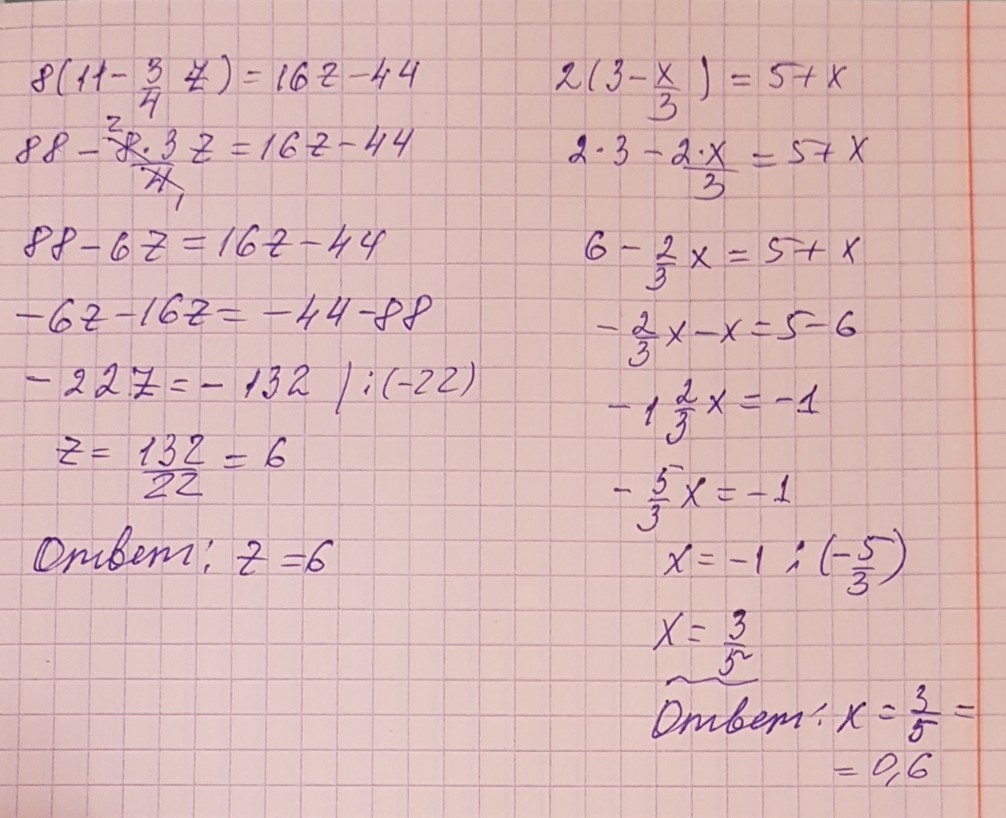 8(11 - 3/4 z) = 16z - 44
88 - 8·3/4 z = 16z - 44
2
1
88 - 6z = 16z - 44
-6z - 16z = -44 - 88
-22z = -132 | : (-22)
z = 132/22 = 6
Ответ: z = 6
2(3 - x/3) = 5 + x
2·3 - 2·x/3 = 5 + x
6 - 2/3 x = 5 + x
- 2/3 x - x = 5 - 6
- 1 2/3 x = -1
- 5/3 x = -1
x = -1 : (-5/3)
x = 3/5
Ответ: x = 3/5 =
= 0,6